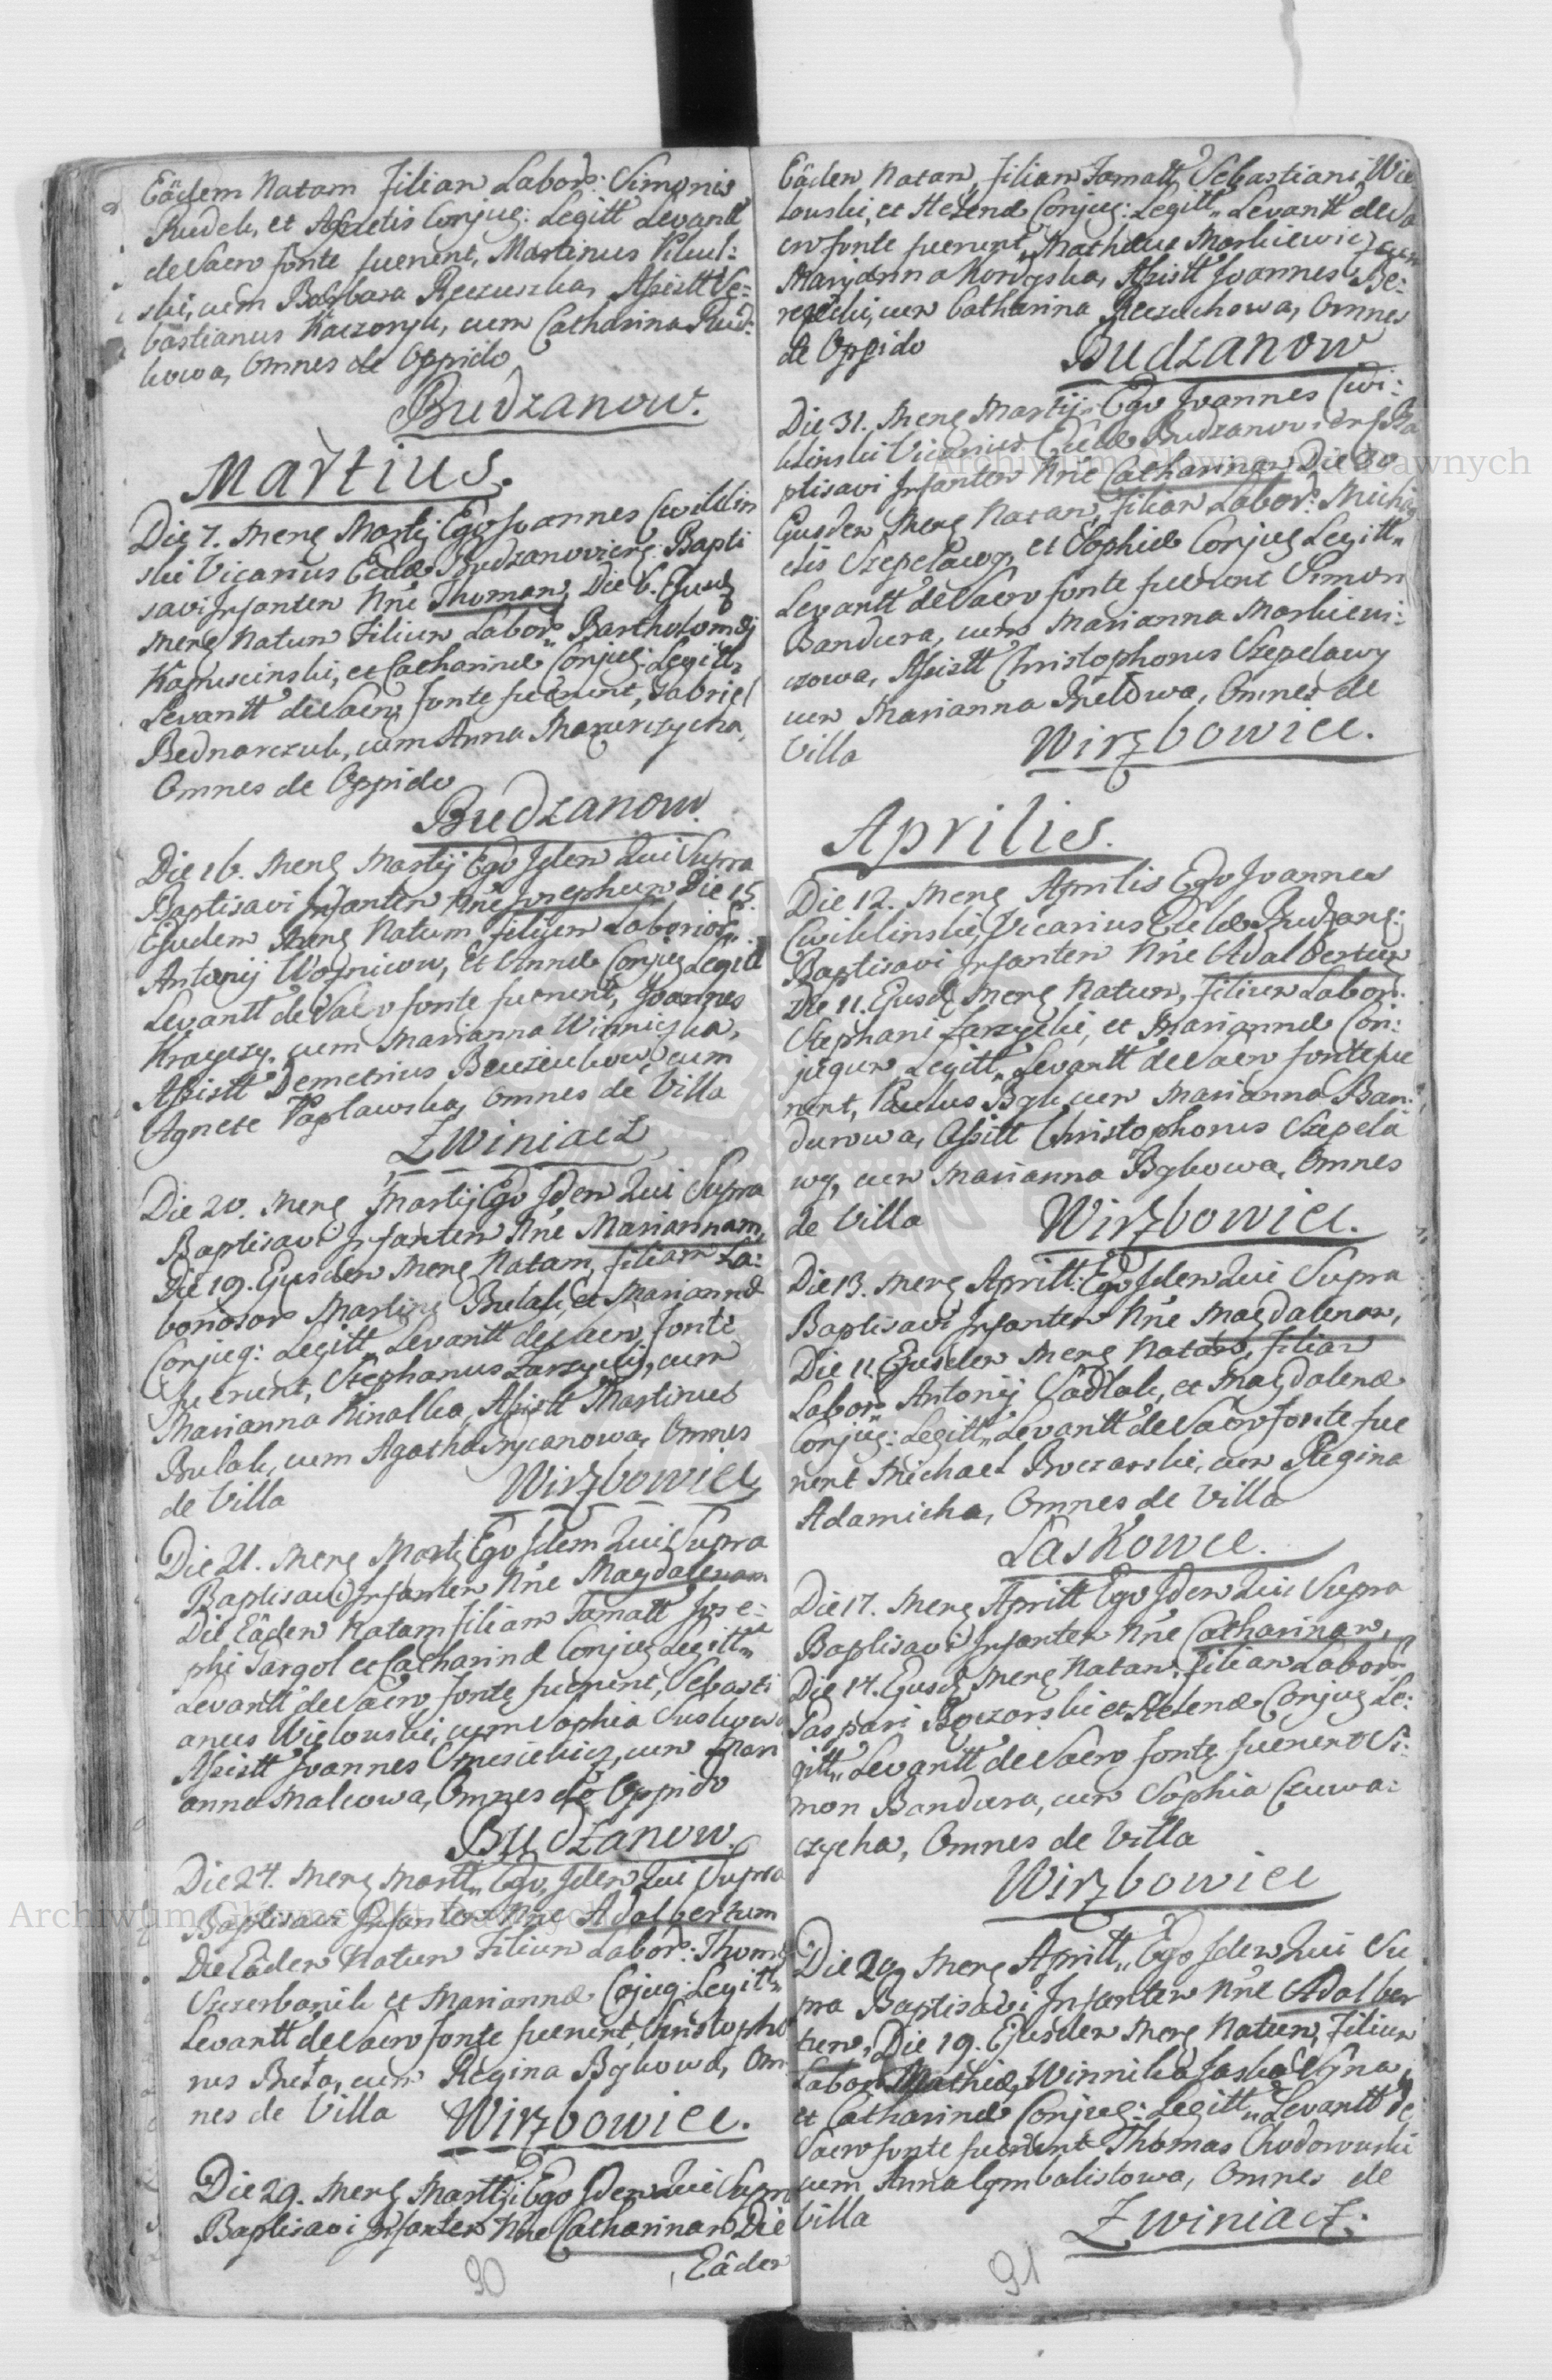 Eâdem Natam Filiam Labors: Simonis
Rudek, et Agnetis Conjug: Legitt Levantt
de Sacro fonte fuerunt, Martinus Pikul:
ski, cum Barbara Reczuszka, Assistt Se:
bastianus Kaczoryk, cum Catharina Rud:
kowa, Omnes de Oppido
Budzanow.
Martius.
Die 7. Mens Martij Ego Joannes Cwiklin
ski Vicarius Eccle Budzanoviens: Bapti
savi Infantem Nne Thomam, Die 6. Ejusd
Mens Natum Filium Labors Bartholomæi
Kapuscinski, et Catharinæ Conjug: Legitt
Levantt de Sacro fonte fuerunt, Gabriel
Bednarczuk, cum Anna Mazurczycha,
Omnes de Oppido
Budzanow.
Die 16. Mens Martij Ego Idem Qui Supra
Baptisavi Infantem Nne Josephum Die 15.
Ejusdem Mens Natum filium Laborios:
Antonij Wozniow, et Annæ Conjug Legitt
Levantt de Sacro fonte fuerunt, Joannes
Krawczy, cum Marianna Winniczka,
Assistt Demetrius cum
Agnete Paplawska, Omnes de Villa
Zwiniacz
Die 20. Mens Martij Ego Idem Qui Supra
Baptisavi Infantem Nne Mariannam,
Die 19. Ejusdem Mens Natam, filiam La:
boriosor Martini Bulak, et Mariannæ
Conjug: Legitt Levantt de Sacro Fonte
fuerunt, Stephanus Zarzycki, cum
Marianna Kinalka, Assistt Martinus
Bulak, cum Agatha Omnes
de Villa Wirzbowiec
Die 21. Mens Martij Ego Idem Qui Supra
Baptisavi Infantem Nne Magdalenam
Die Eâdem Natam filiam Famatt Jose:
phi Targol et Catharinæ Conjug Legitt
Levantt de Sacro fonte fuerunt, Sebasti
anus Wielowski, cum Sophia Suskowa
Assistt Joannes cum Mari
anna Malcowa, Omnes de Oppido
Budzanow.
Die 24. Mens Martt Ego Idem Qui Supra
Baptisavi Infantem Nne Adalbertum
Die Eâdem Natum Filium Labors: Thomæ
Szczerbanik et Mariannæ Cojug: Legitt
Levantt de Sacro fonte fuerunt, Christopho
rus Buta, cum Regina Bykowa, Om
nes de Villa Wirzbowiec.
Die 29. Mens Martij Ego Idem Qui Supra
Baptisavi Infantem Nne Catharinam Die
Eâdem
90
Eâdem Natam, filiam Famatt Sebastiani Wie
lowski, et Helenæ Conjug: Legitt Levantt de Sa
cro fonte fuerunt, Mathæus Markiewicz cum
Marjanna Assistt Joannes Be:
reski, cum Catharina Reczuchowa, Omnes
de Oppido Budzanow
Die 31. Mens Martij Ego Joannes Cwi:
klinski Vicarius Eccle Budzanoviens Ba
ptisavi Infantem Nne Catharinam Die 30
Ejusdem Mens Natam, Filiam Labor: Micha
elis Szepelawy, et Sophiæ Conjug Legitt
Levantt de Sacro fonte fuerunt Simon
Bandura, cum Marianna Markiewi:
czowa, Assistt Christophorus Szepelawy
cum Marianna Omnes de
Villa Wirzbowiec.
Aprilis.
Die 12. Mens Aprilis Ego Joannes
Cwiklinski, Vicarius Eccle Budzans:
Baptisavi Infantem Nne Adalbertum
Die 11. Ejusd Mens Natum, filium Labor
Stephani Zarzycki, et Mariannæ Con:
jugum Legitt, Levantt de Sacro fonte fue
runt, Paulus Byk cum Marianna Ban:
durowa, Assistt Christophorus Szepela
wy, cum Marianna Bykowa, Omnes
de Villa Wirzbowiec.
Die 13. Mens Aprill: Ego Idem Qui Supra
Baptisavi Infantem Nne Magdalenam,
Die 11 Ejusdem Mens Natam, filiam
Labors Antonij Sadlak, et Magdalenæ
Conjug: Legitt, Levantt de Sacro fonte fue
runt Michael Boczarski, cum Regina
Adamicha, Omnes de Villa
Laskowce.
Die 17. Mens Aprill Ego Idem Qui Supra
Baptisavi Infantem Nne Catharinam,
Die 14. Ejusd Mens Natam, filiam Labor
Gaspari Boczarski et Helenæ Conjug Le:
gitt, Levantt de Sacro fonte fuerunt Si:
mon Bandura, cum Sophia Czuwa:
czycha, Omnes de Villa
Wirzbowiec
Die 20 Mens Aprill Ego Idem Qui Su
pra Baptisavi Infantem Nne Adalber
tum, Die 19. Ejusdem Mens Natum, Filium
Labors Mathiæ Winnika
et Catharinæ Conjug: Legitt, Levantt de
Sacro fonte fuerunt Thomas Chodorowski
cum Anna Cymbalistowa, Omnes de
Villa Zwiniacz:
91
Archiwum Główne Akt Dawnych
Archiwum Główne Akt Dawnych